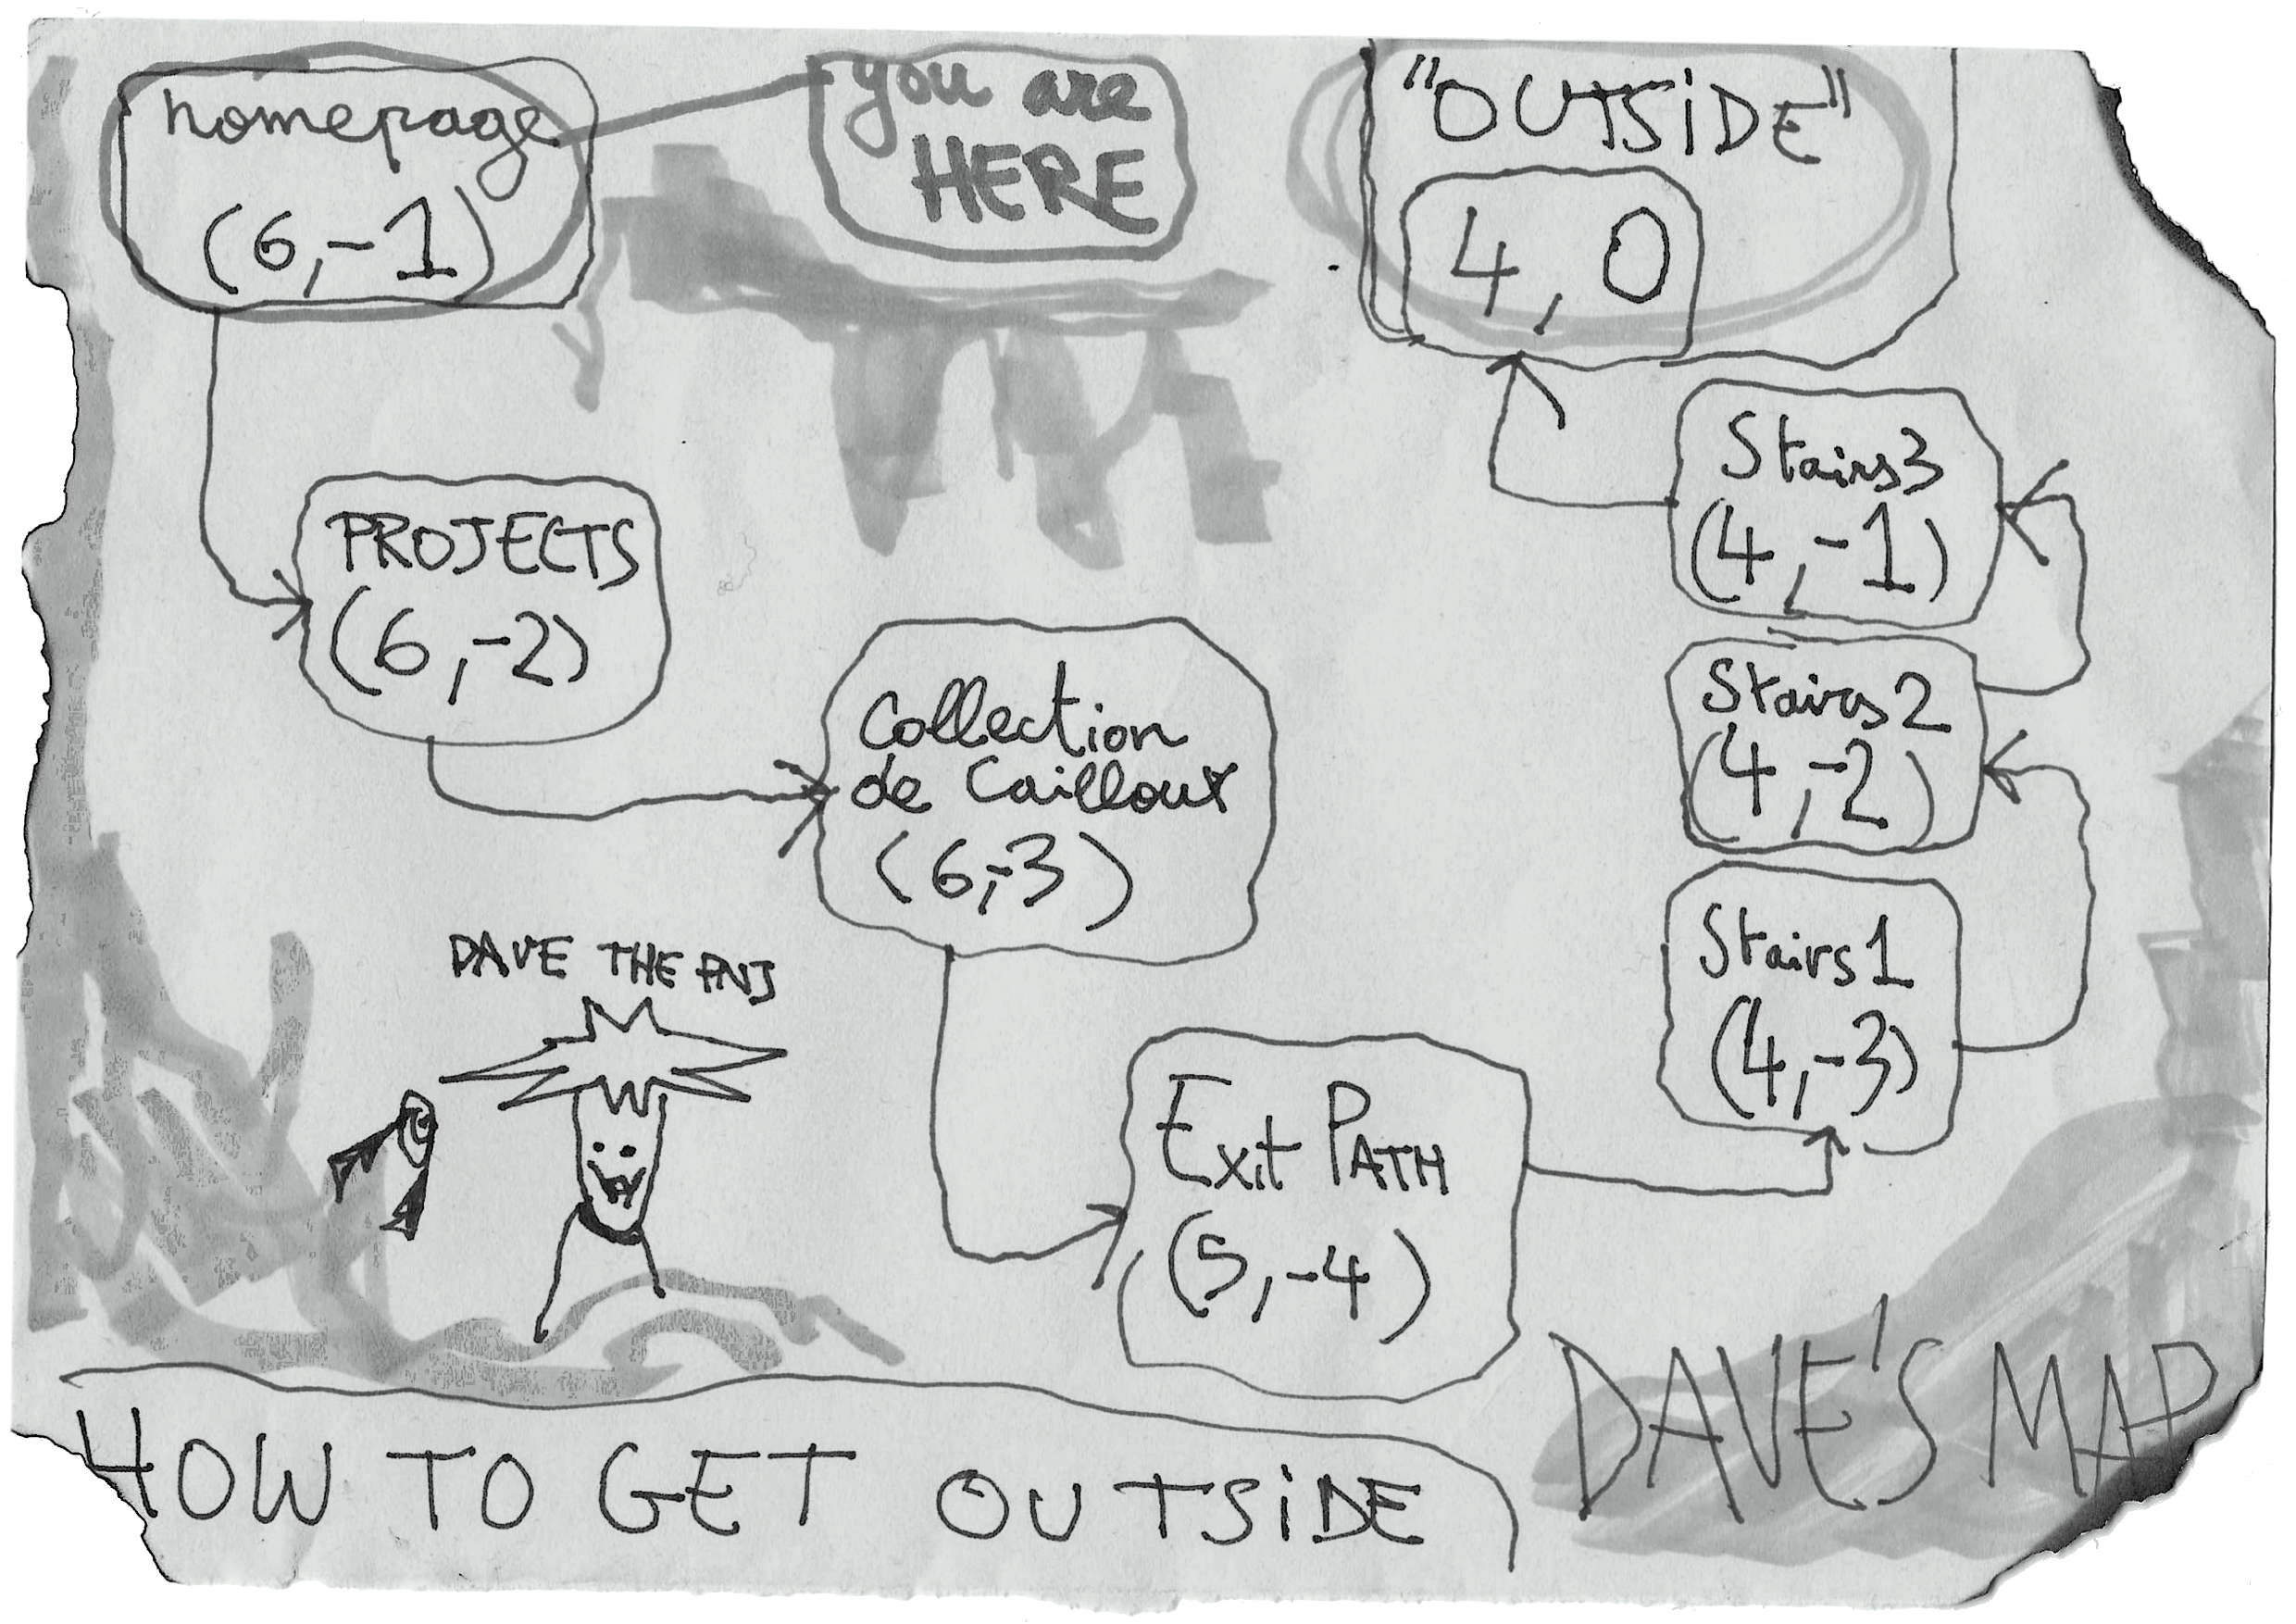 homepage
(6,-1)
you are
HERE
"OUTSiDE"
4, 0
PROJECTS
(6,-2)
Collection
de Cailloux
(6,-3)
Stairs3
(4,-1)
Stairs2
(4,-2)
Stairs1
(4,-3)
DAVE THE PNJ
Exit PATH
(5,-4)
DAVE'S MAP
HOW TO GET OUTSiDE